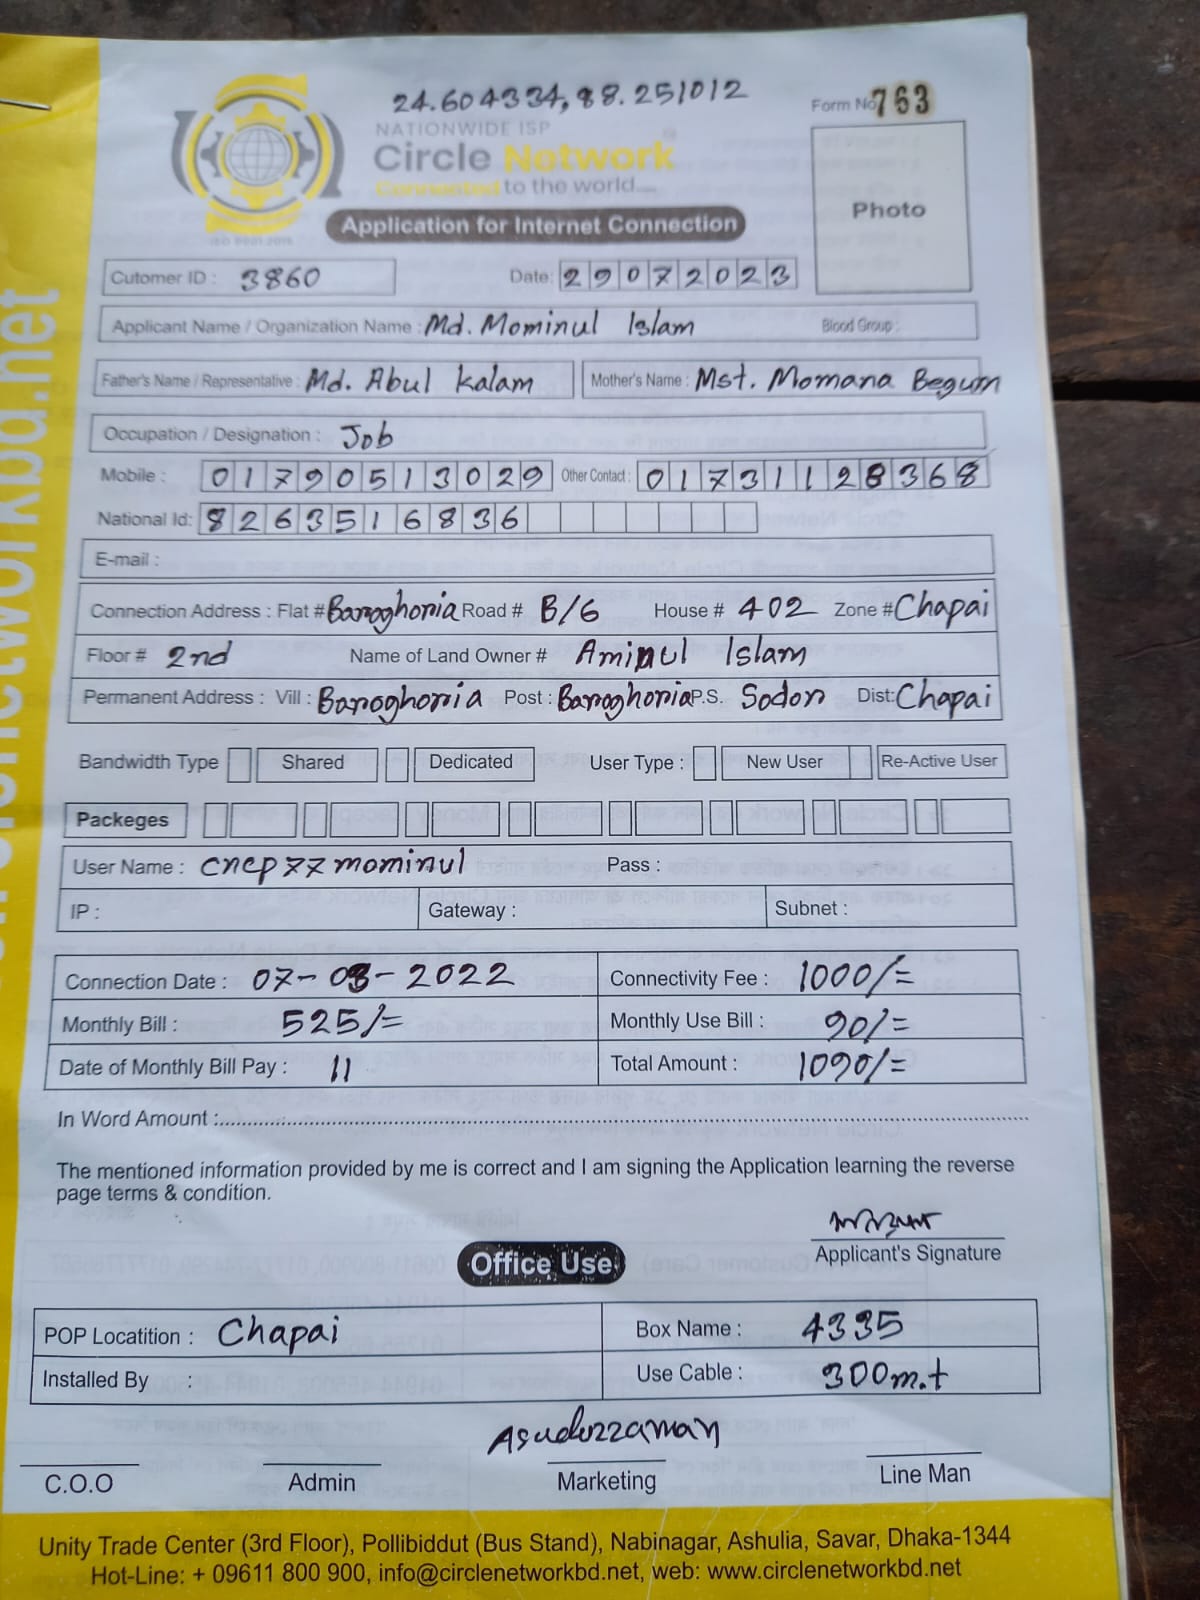 24.604334, 88.251012
NATIONWIDE ISP
Form No 763
Circle Network
Connected to the world....
Photo
Application for Internet Connection
ISO 9001:2015
Cutomer ID : 3860 Date: 29072023
Applicant Name / Organization Name : Md. Mominul Islam Blood Group :
Father's Name / Representative : Md. Abul Kalam Mother's Name : Mst. Momana Begum
Occupation / Designation : Job
Mobile : 01790513029 Other Contact : 01731128368
National Id: 8263516836
E-mail :
Connection Address : Flat # Baroghoria Road # B/6 House # 402 Zone # Chapai
Floor # 2nd Name of Land Owner # Aminul Islam
Permanent Address : Vill : Baroghoria Post : Baroghoria P.S. Sodor Dist: Chapai
Bandwidth Type Shared Dedicated User Type : New User Re-Active User
Packeges
User Name : cncp77mominul Pass :
IP : Gateway : Subnet :
Connection Date : 07-08-2022 Connectivity Fee : 1000/=
Monthly Bill : 525/= Monthly Use Bill : 90/=
Date of Monthly Bill Pay : 11 Total Amount : 1090/=
In Word Amount :
The mentioned information provided by me is correct and I am signing the Application learning the reverse
page terms & condition.
Applicant's Signature
Office Use
POP Locatition : Chapai Box Name : 4335
Installed By : Use Cable : 300m.t
Asuduzzaman
C.O.O Admin Marketing Line Man
Unity Trade Center (3rd Floor), Pollibiddut (Bus Stand), Nabinagar, Ashulia, Savar, Dhaka-1344
Hot-Line: + 09611 800 900, info@circlenetworkbd.net, web: www.circlenetworkbd.net